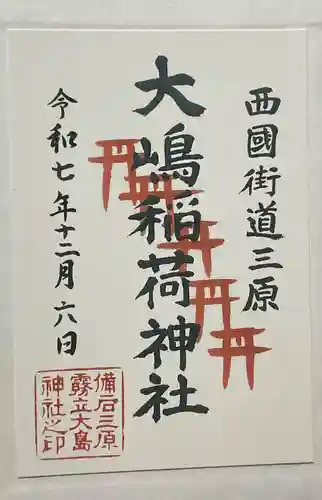 西國街道三原
大嶋稲荷神社
令和七年十二月六日
備后三原
霧立大島
神社之印